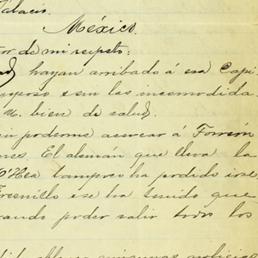 Palacio.
México.
or de mi respeto:
hayan arribado á esa Capi
sin las incomodida
V. bien de salud
poderme acercar á Torreón
nes. El alemán que lleva la
O'Hea tampoco ha podido irse
Fresnillo se ha tenido que
rando poder salir todos los